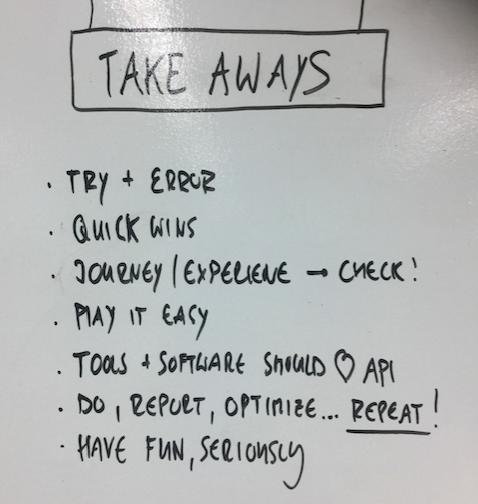 TAKE AWAYS
· TRY + ERROR
· QUICK WINS
· JOURNEY / EXPERIENE → CHECK!
· PLAY IT EASY
· TOOLS + SOFTWARE SHOULD ♡ API
· DO, REPORT, OPTIMIZE... REPEAT!
· HAVE FUN, SERIOUSLY